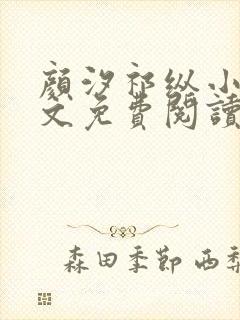 顏汐祁纵小
文免費閱讀
森田季節 西梨